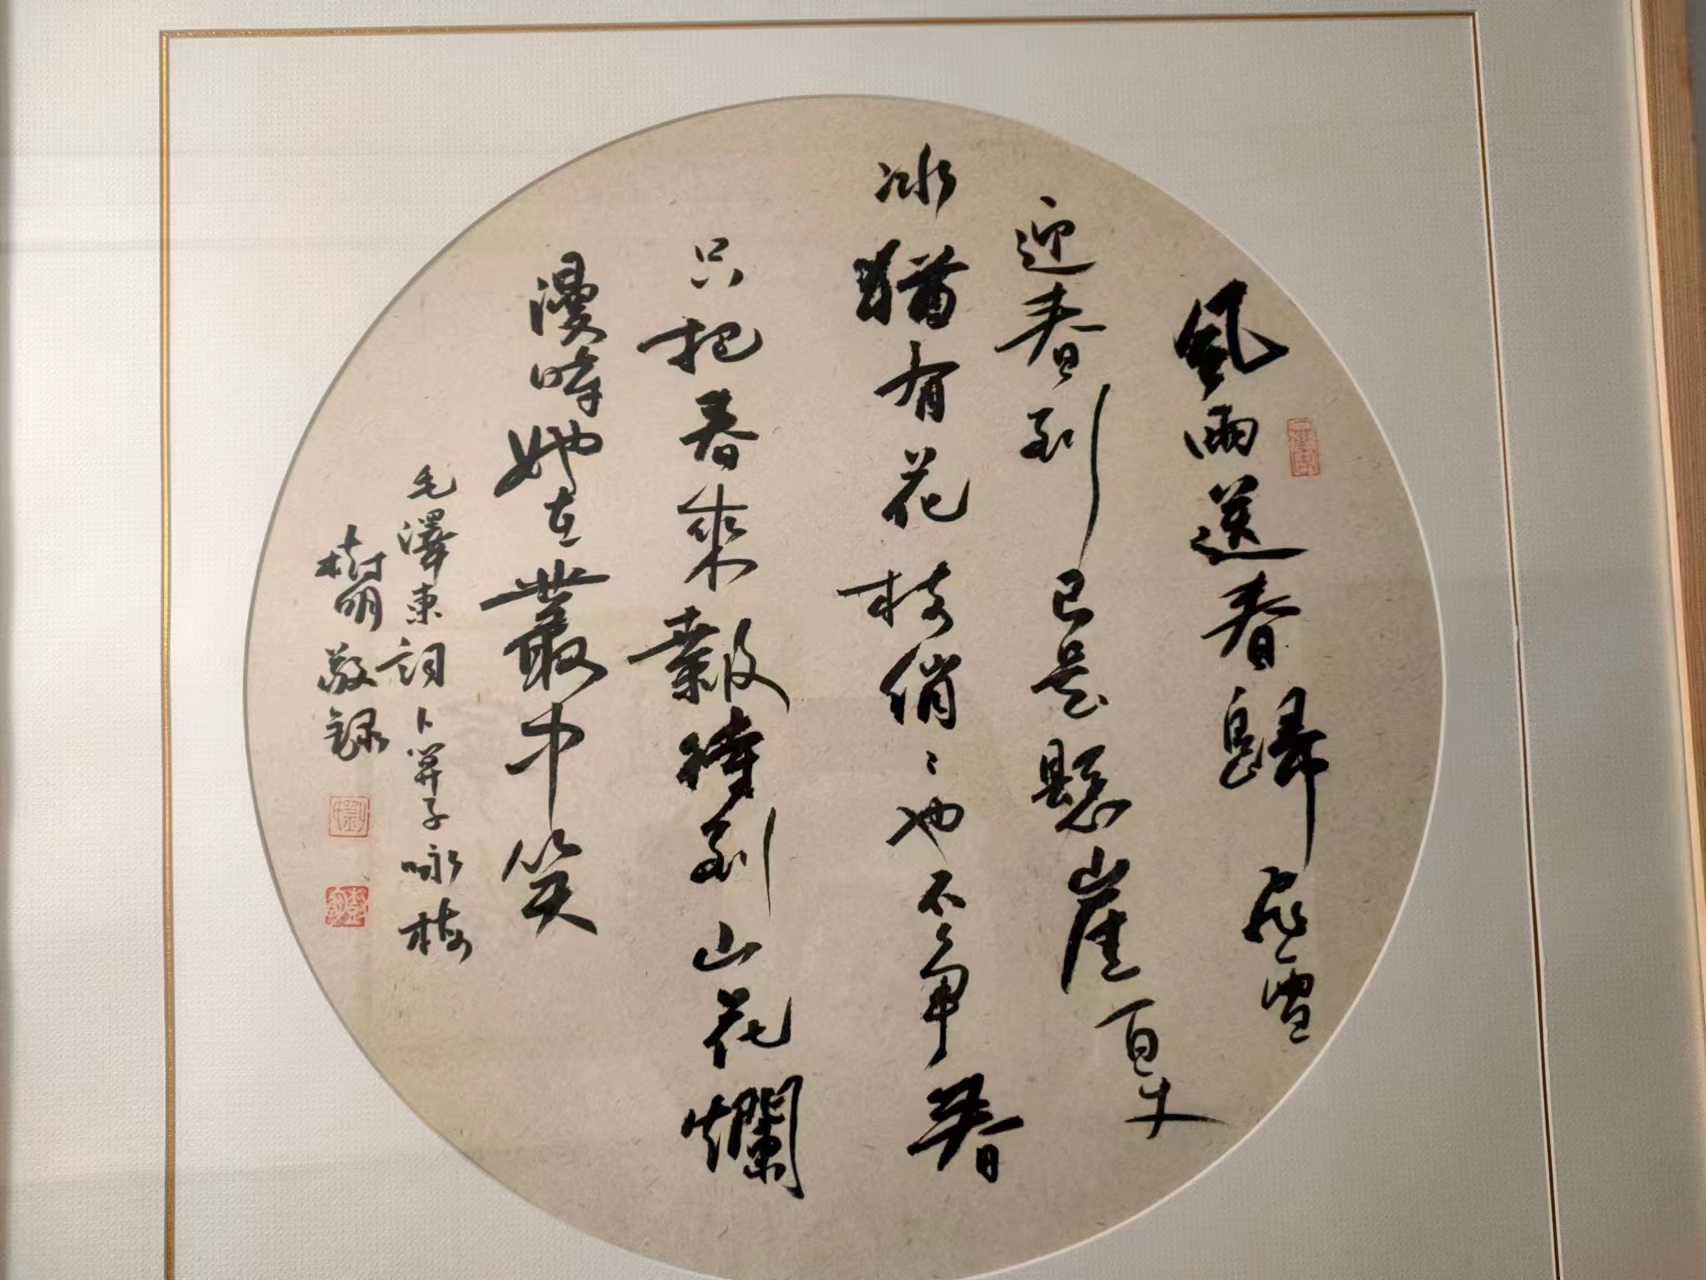 風雨送春歸飛雪
迎春到已是懸崖百丈
冰猶有花枝俏〻也不争春
只把春來報待到山花爛
漫時她在叢中笑
毛澤東詞卜算子咏梅
樹明敬録